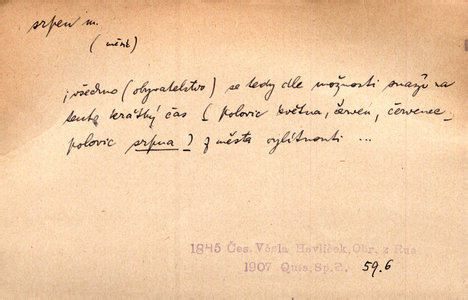 srpen m.
(měsíc)
; všechno (obyvatelstvo) se tedy dle možnosti snaží na
tento krátký čas [polovic května, červen, červenec,
polovic srpna] z města vylítnouti ...
1845 Čes. Včela Havlíček, Obr. z Rus
1907 Quis, Sp. 2. 59.6